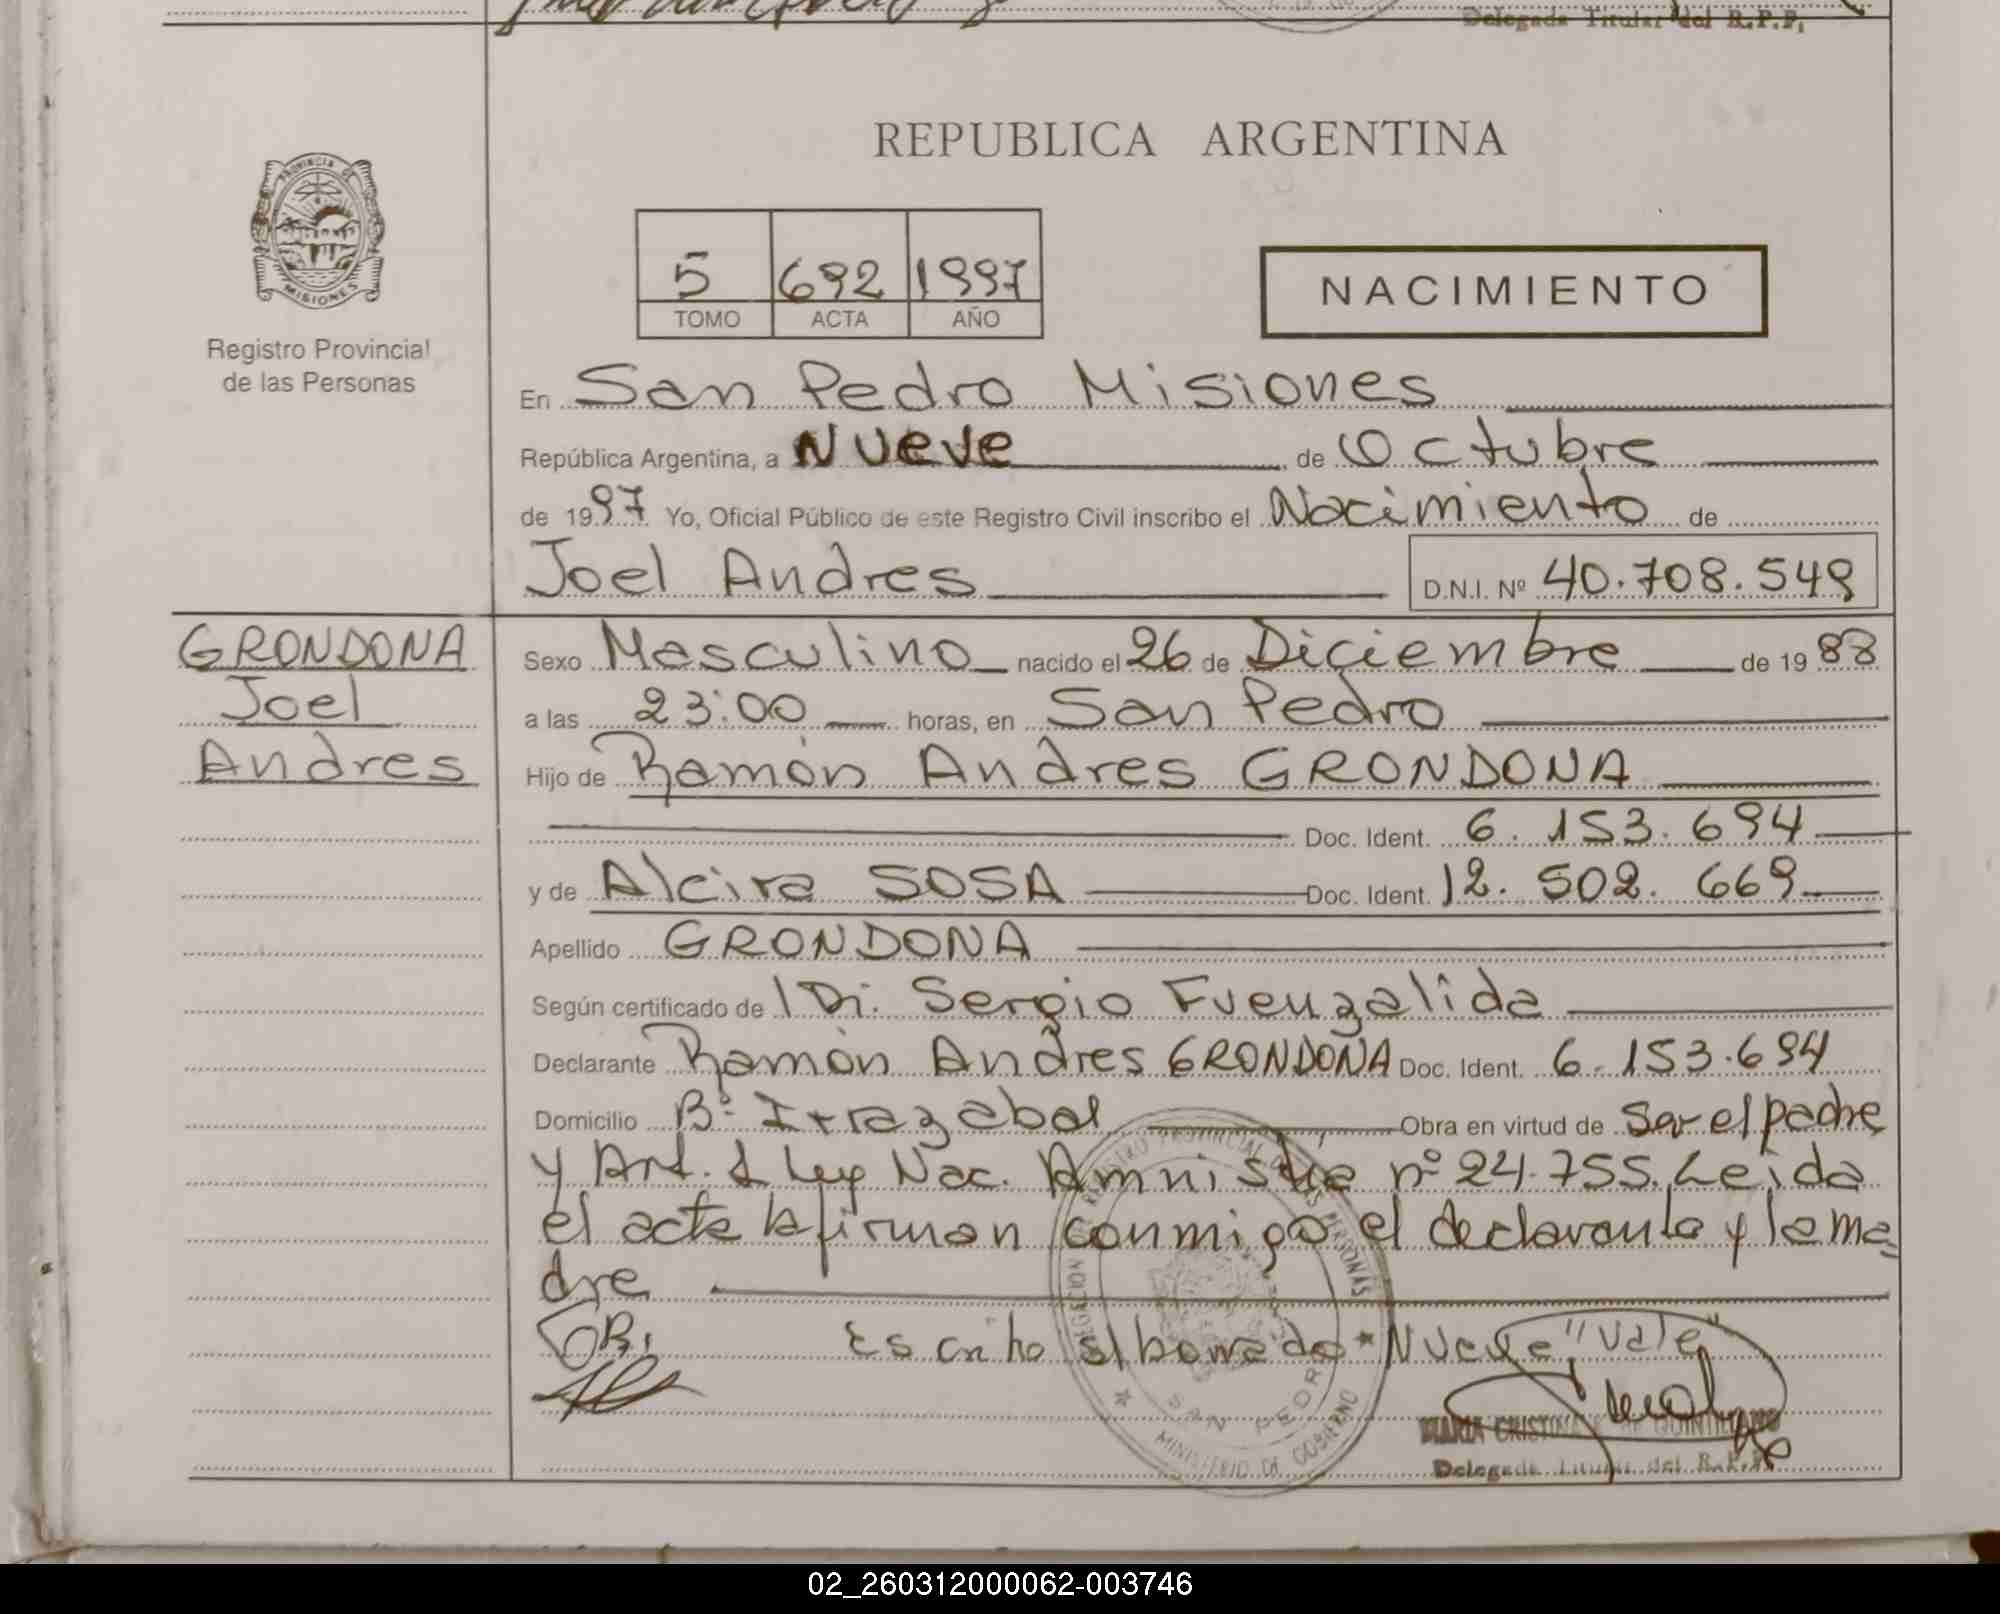 Delegada Titular del R.P.P.
REPUBLICA ARGENTINA
PROVINCIA DE MISIONES
Registro Provincial
de las Personas
5 692 1997
TOMO ACTA AÑO
NACIMIENTO
En San Pedro Misiones
República Argentina, a Nueve de Octubre
de 1997 Yo, Oficial Público de este Registro Civil inscribo el Nacimiento de
Joel Andres D.N.I. Nº 40.708.549
GRONDONA
Joel
Andres
Sexo Masculino nacido el 26 de Diciembre de 1988
a las 23:00 horas, en San Pedro
Hijo de Ramón Andres GRONDONA
Doc. Ident. 6.153.694
y de Alcira SOSA Doc. Ident. 12.502.669
Apellido GRONDONA
Según certificado de Sergio Fuenzalida
Declarante Ramón Andres GRONDONA Doc. Ident. 6.153.694
Domicilio Bº Irrazabal Obra en virtud de Ser el padre
y Art. 1 Ley Nac. Amnistia nº 24.755. Leida
el acta la firman conmigo el declarante y la ma=
dre
Escrito s/borrado "Nueve" Vale"
REGISTRO PROVINCIAL DE LAS PERSONAS
DELEGACION
SAN PEDRO
MINISTERIO DE GOBIERNO
MARIA CRISTINA QUINTILLANO
Delegada Titular del R.P.P.
02_260312000062-003746